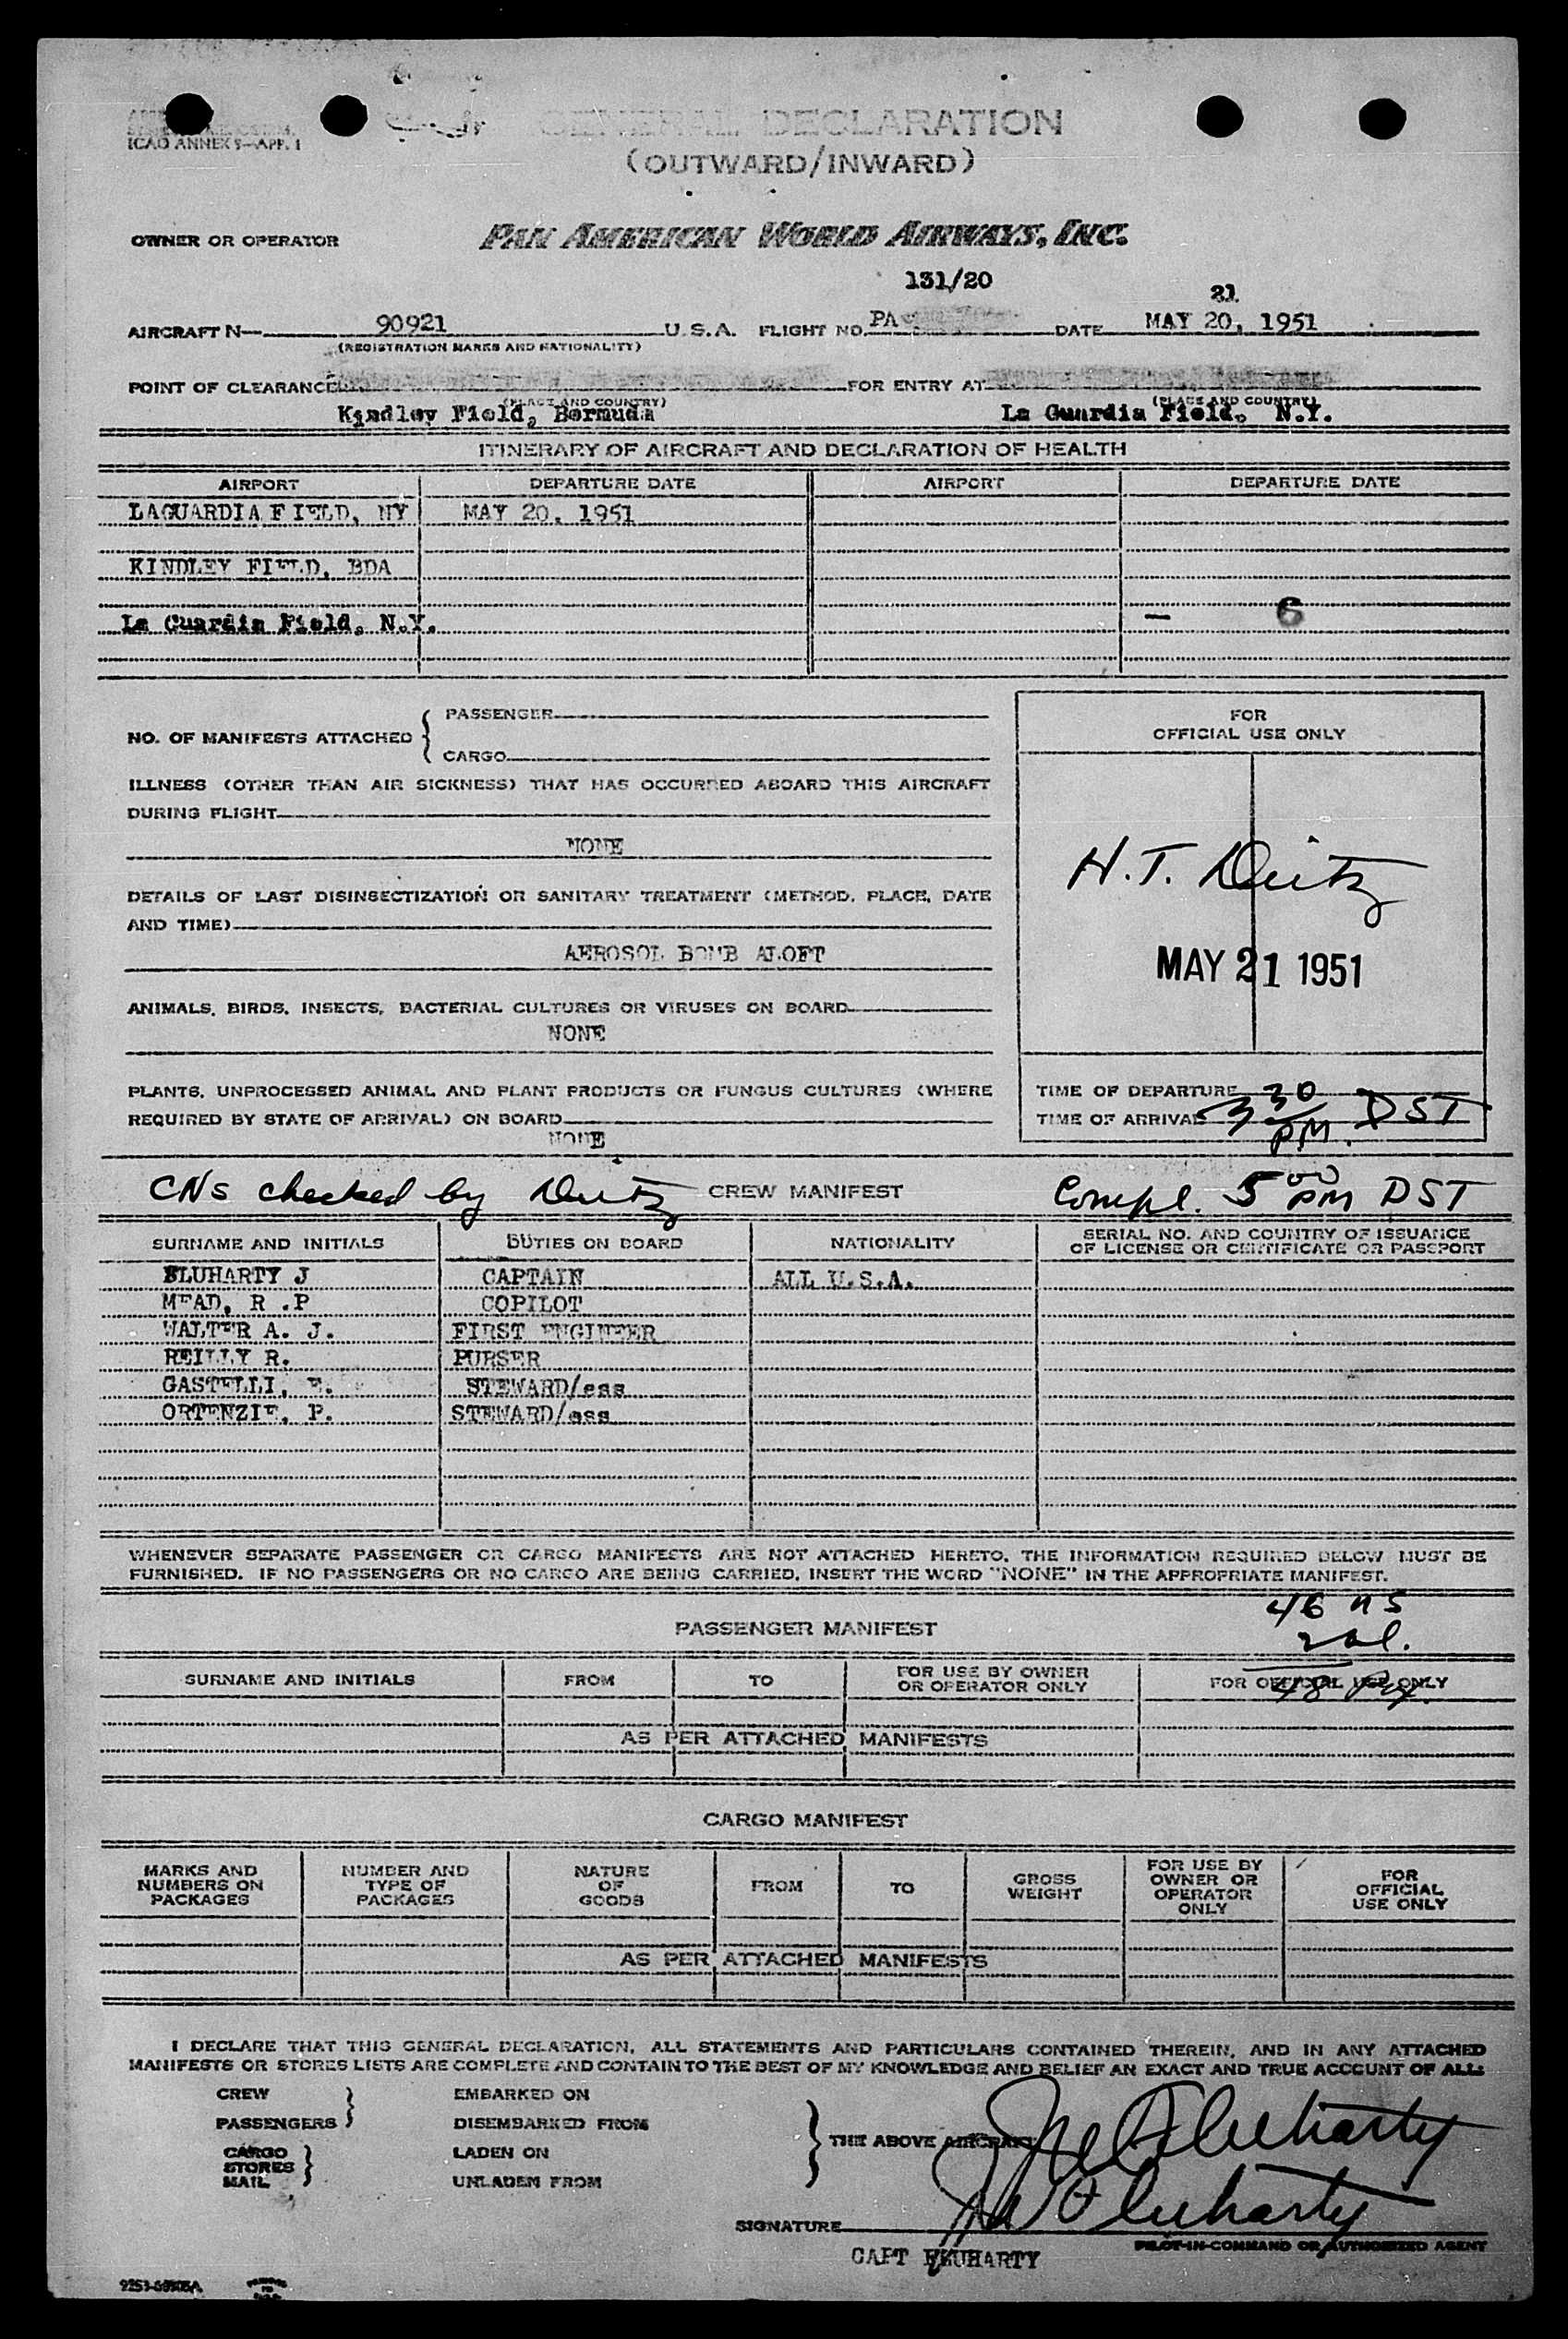 ICAO ANNEX 9—APP. 1
GENERAL DECLARATION
(OUTWARD/INWARD)
OWNER OR OPERATOR PAN AMERICAN WORLD AIRWAYS, INC.
131/20
21
AIRCRAFT N— 90921 U.S.A. FLIGHT NO. PA DATE MAY 20, 1951
(REGISTRATION MARKS AND NATIONALITY)
POINT OF CLEARANCE FOR ENTRY AT
(PLACE AND COUNTRY) (PLACE AND COUNTRY)
Kindley Field, Bermuda La Guardia Field, N.Y.
ITINERARY OF AIRCRAFT AND DECLARATION OF HEALTH
AIRPORT DEPARTURE DATE AIRPORT DEPARTURE DATE
LAGUARDIA FIELD, NY MAY 20, 1951
KINDLEY FIELD, BDA
La Guardia Field, N.Y. — 6
NO. OF MANIFESTS ATTACHED { PASSENGER
CARGO
ILLNESS (OTHER THAN AIR SICKNESS) THAT HAS OCCURRED ABOARD THIS AIRCRAFT
DURING FLIGHT
NONE
DETAILS OF LAST DISINSECTIZATION OR SANITARY TREATMENT (METHOD, PLACE, DATE
AND TIME)
AEROSOL BOMB ALOFT
ANIMALS, BIRDS, INSECTS, BACTERIAL CULTURES OR VIRUSES ON BOARD
NONE
PLANTS, UNPROCESSED ANIMAL AND PLANT PRODUCTS OR FUNGUS CULTURES (WHERE
REQUIRED BY STATE OF ARRIVAL) ON BOARD
NONE
FOR
OFFICIAL USE ONLY
H.T. Deitz
MAY 21 1951
TIME OF DEPARTURE
TIME OF ARRIVAL 3 30 PM. DST
CNs checked by Deitz CREW MANIFEST Compl. 5 00 PM DST
SURNAME AND INITIALS DUTIES ON BOARD NATIONALITY SERIAL NO. AND COUNTRY OF ISSUANCE
OF LICENSE OR CERTIFICATE OR PASSPORT
FLUHARTY J CAPTAIN ALL U.S.A.
MEAD, R .P COPILOT
WALTER A. J. FIRST ENGINEER
REILLY R. PURSER
GASTELLI, E. STEWARD/ess
ORTENZIE, P. STEWARD/ess
WHENEVER SEPARATE PASSENGER OR CARGO MANIFESTS ARE NOT ATTACHED HERETO, THE INFORMATION REQUIRED BELOW MUST BE
FURNISHED. IF NO PASSENGERS OR NO CARGO ARE BEING CARRIED, INSERT THE WORD "NONE" IN THE APPROPRIATE MANIFEST.
46 US
2 al.
48 Px.
PASSENGER MANIFEST
SURNAME AND INITIALS FROM TO FOR USE BY OWNER
OR OPERATOR ONLY FOR OFFICIAL USE ONLY
AS PER ATTACHED MANIFESTS
CARGO MANIFEST
MARKS AND
NUMBERS ON
PACKAGES
NUMBER AND
TYPE OF
PACKAGES
NATURE
OF
GOODS
FROM
TO
GROSS
WEIGHT
FOR USE BY
OWNER OR
OPERATOR
ONLY
FOR
OFFICIAL
USE ONLY
AS PER ATTACHED MANIFESTS
I DECLARE THAT THIS GENERAL DECLARATION, ALL STATEMENTS AND PARTICULARS CONTAINED THEREIN, AND IN ANY ATTACHED
MANIFESTS OR STORES LISTS ARE COMPLETE AND CONTAIN TO THE BEST OF MY KNOWLEDGE AND BELIEF AN EXACT AND TRUE ACCOUNT OF ALL:
CREW EMBARKED ON
PASSENGERS } DISEMBARKED FROM
} THE ABOVE AIRCRAFT
CARGO LADEN ON
STORES }
MAIL UNLADEN FROM
Fluharty
SIGNATURE Fluharty
PILOT-IN-COMMAND OR AUTHORIZED AGENT
CAPT FLUHARTY